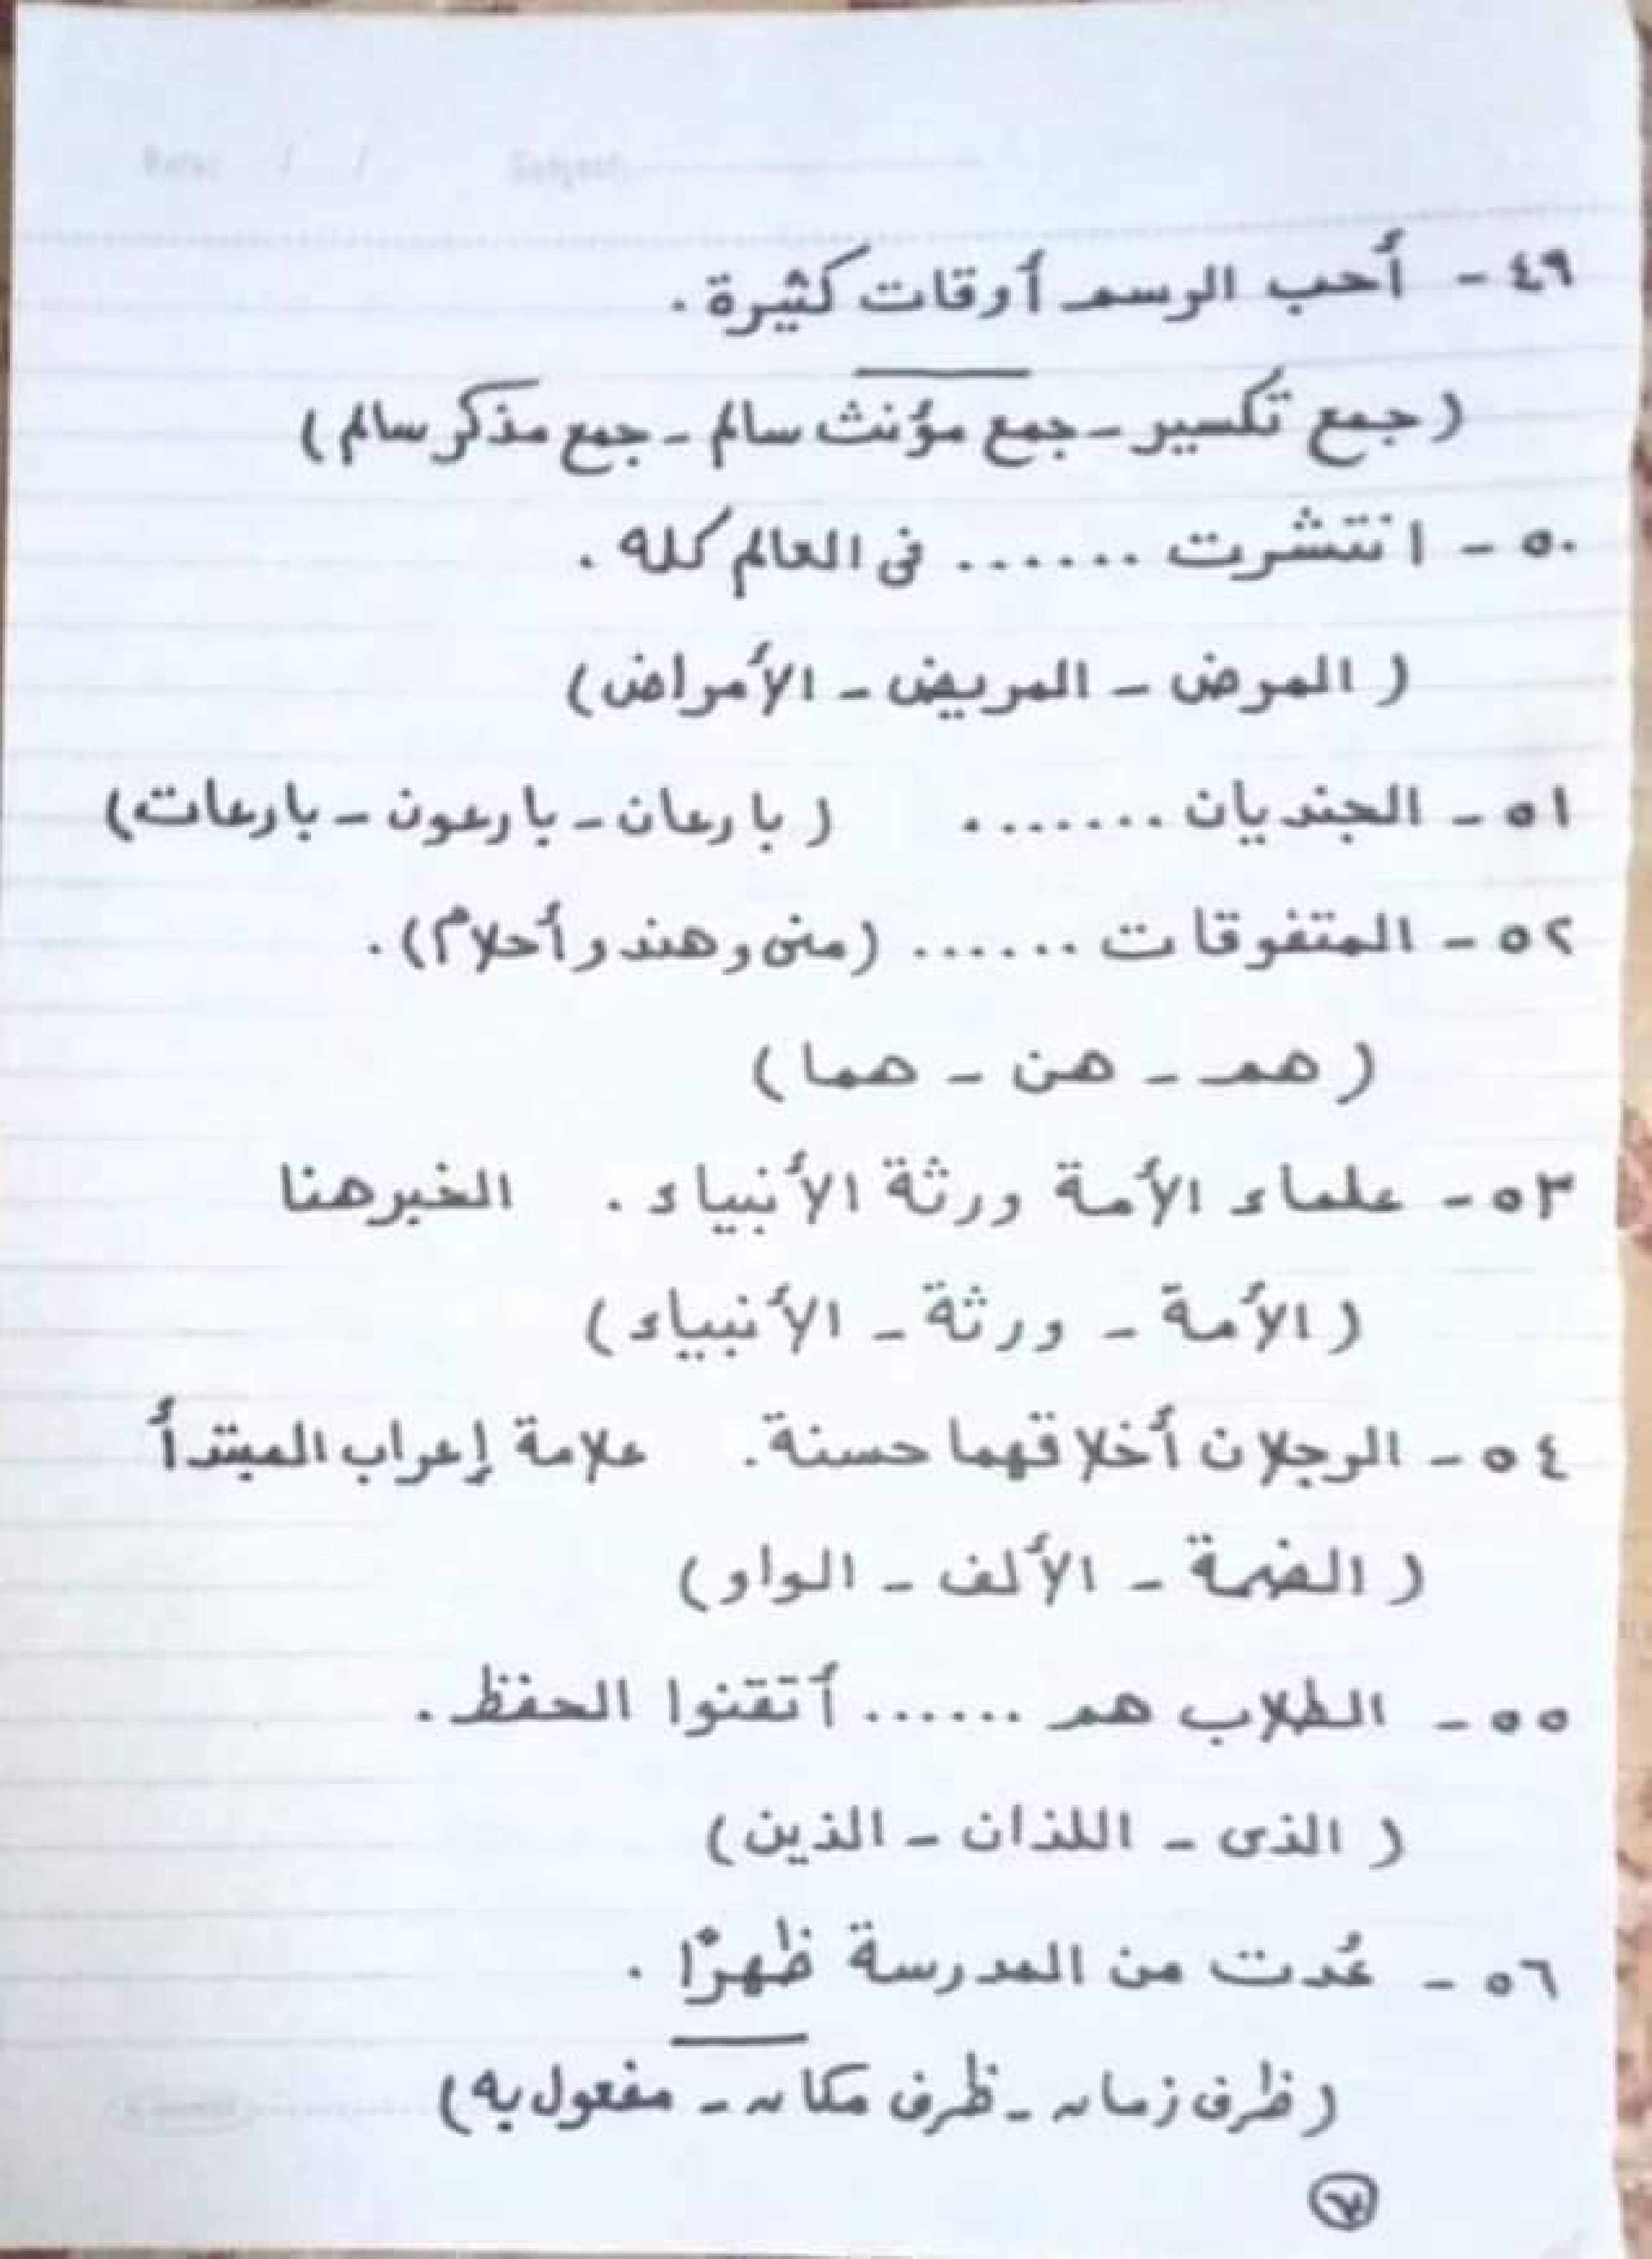 Date: / / Subject:
٤٩ - أحب الرسم أوقات كثيرة .
( جمع تكسير - جمع مؤنث سالم - جمع مذكر سالم )
٥٠ - انتشرت ...... فى العالم كله .
( المرض - المريض - الأمراض )
٥١ - الجنديان ....... ( بارعان - بارعون - بارعات )
٥٢ - المتفوقات ...... (منى وهند وأحلام) .
( هم - هن - هما )
٥٣ - علماء الأمة ورثة الأنبياء . الخبر هنا
( الأمة - ورثة - الأنبياء )
٥٤ - الرجلان أخلاقهما حسنة . علامة إعراب المبتدأ
( الضمة - الألف - الواو )
٥٥ - الطلاب هم ...... أتقنوا الحفظ .
( الذى - اللذان - الذين )
٥٦ - عُدت من المدرسة ظهرًا .
( ظرف زمان - ظرف مكان - مفعول به )
٧